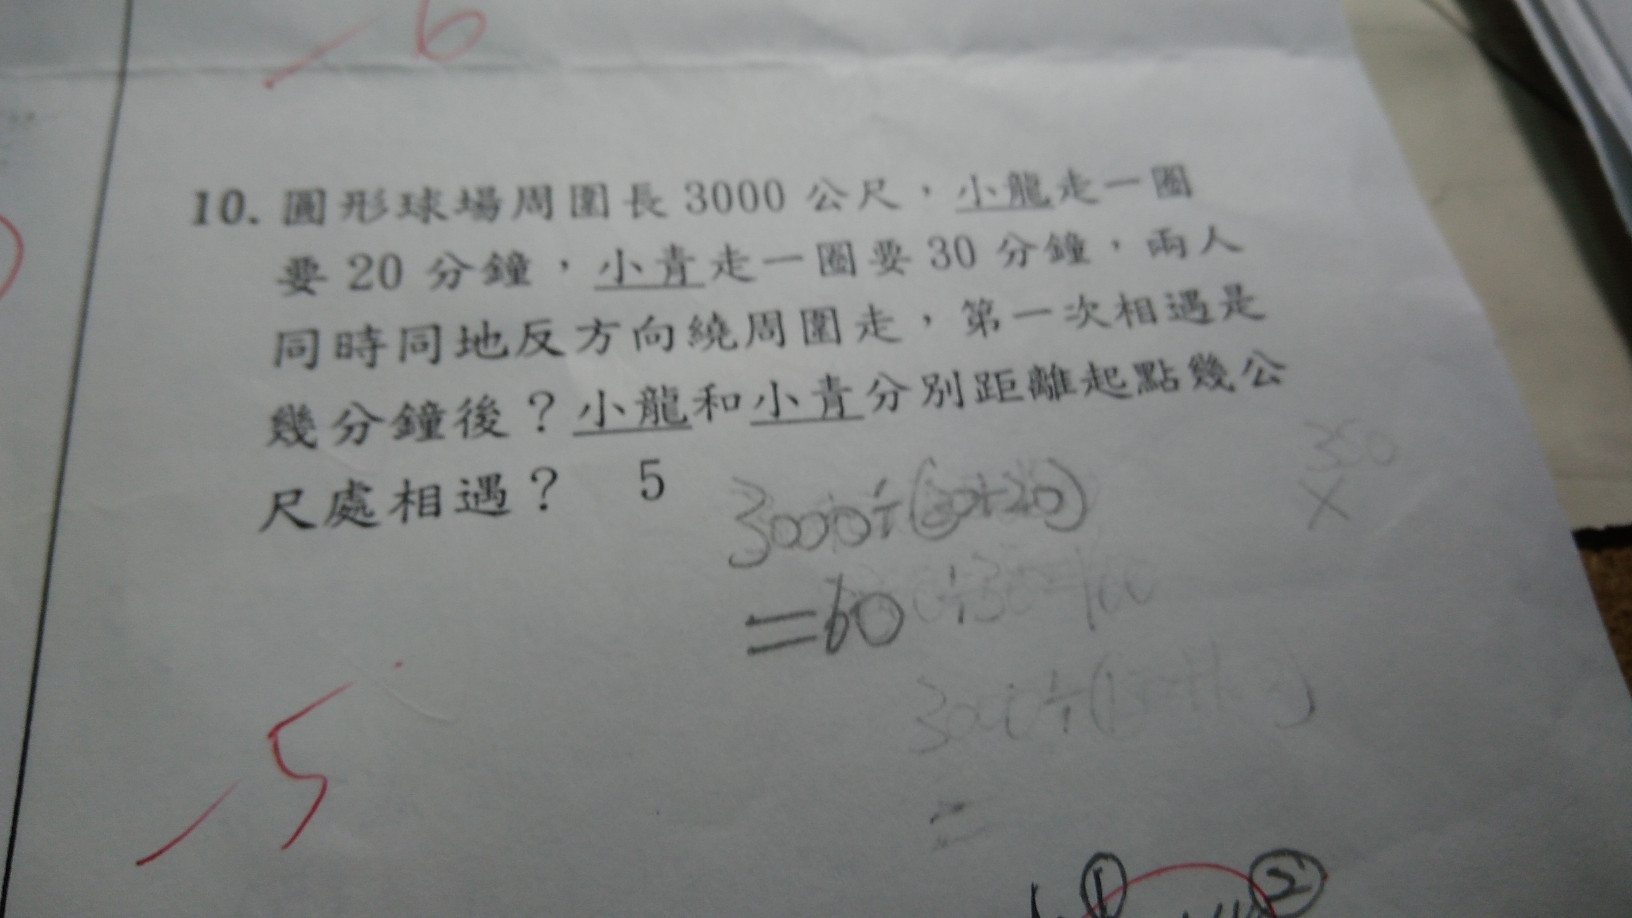 6
10. 圓形球場周圍長 3000 公尺，小龍走一圈
要 20 分鐘，小青走一圈要 30 分鐘，兩人
同時同地反方向繞周圍走，第一次相遇是
幾分鐘後？小龍和小青分別距離起點幾公
尺處相遇？ 5
350
×
3000÷(30+20)
=60
5
① ②